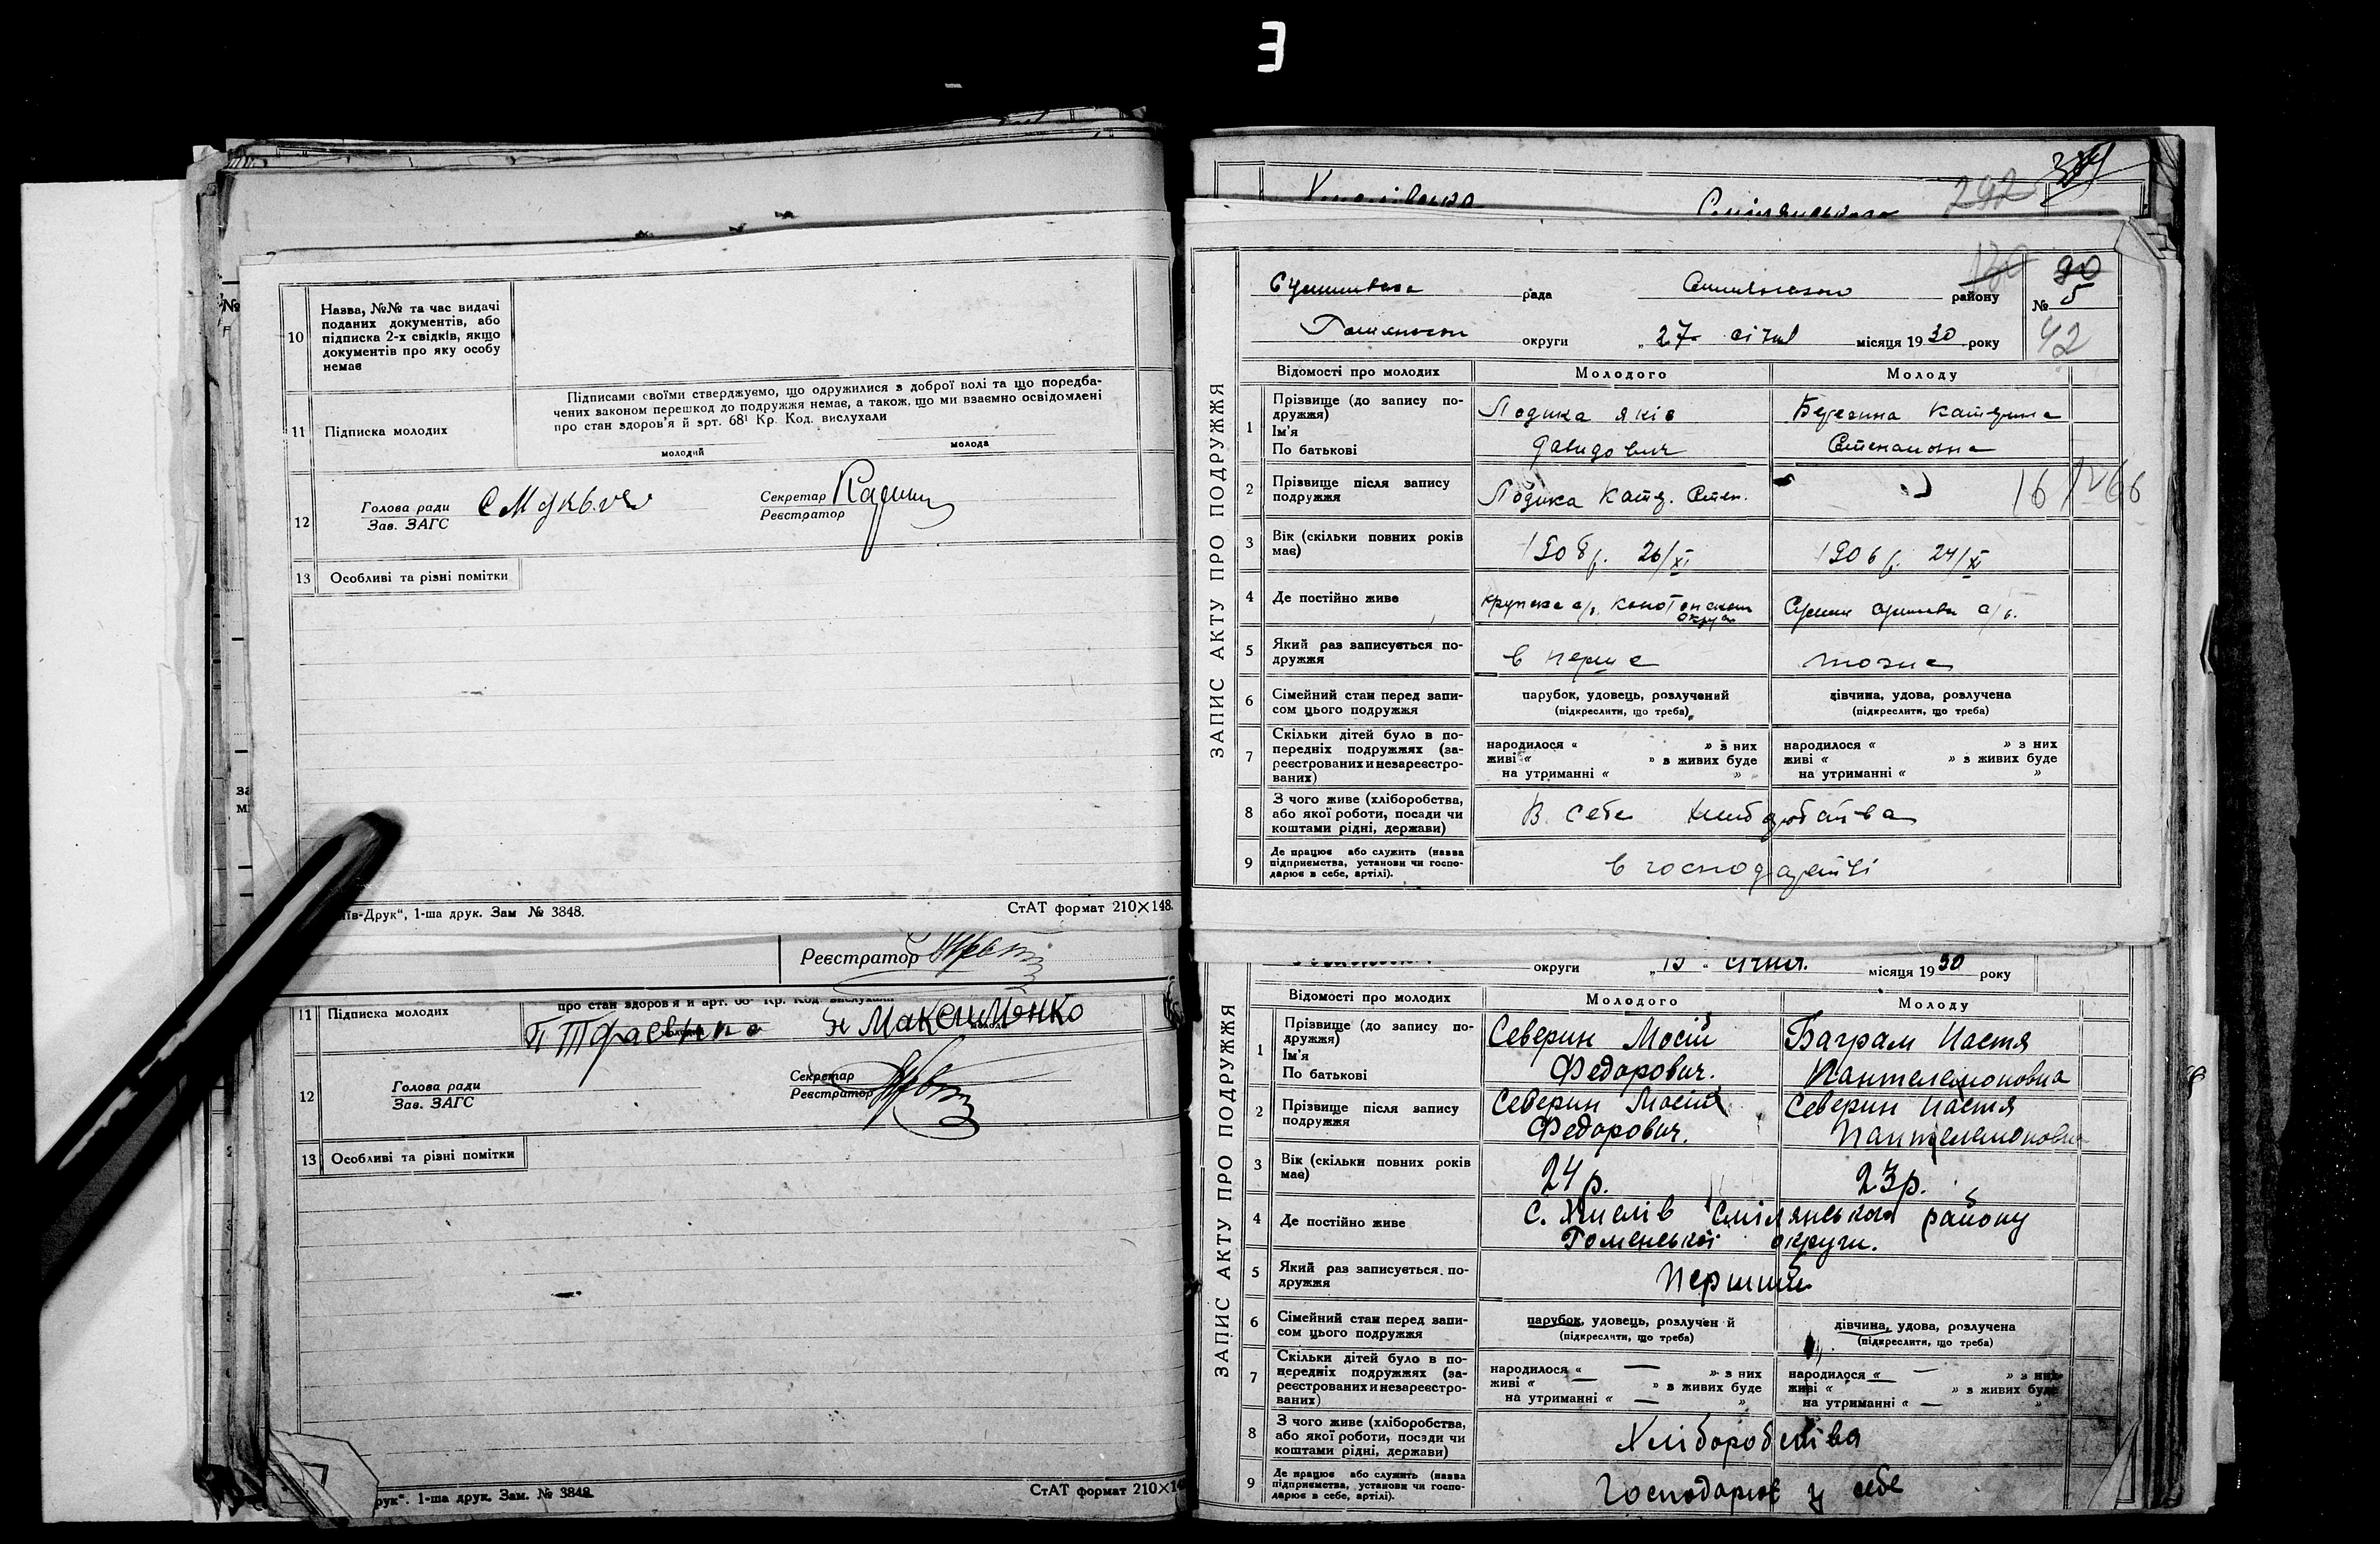 3
10
Назва, №№ та час видачі
поданих документів, або
підписка 2-х свідків, якщо
документів про яку особу
немає
11
Підписка молодих
Підписами своїми стверджуємо, що одружилися з доброї волі та що поредба-
чених законом перешкод до подружжя немає, а також, що ми взаємно освідомлені
про стан здоров'я й арт. 68¹ Кр. Код. вислухали
молодий
молода
12
Голова ради
Зав. ЗАГС
Секретар
Реєстратор
13
Особливі та різні помітки
їв-Друк", 1-ша друк. Зам № 3848.
СтАТ формат 210×148.
Реєстратор
11
Підписка молодих
про стан здоров'я й арт. 68¹ Кр. Код. вислухали
Н Максименко
12
Голова ради
Зав. ЗАГС
Секретар
Реєстратор
13
Особливі та різні помітки
рук". 1-ша друк. Зам. № 3848.
СтАТ формат 210×14
292
ЗАПИС АКТУ ПРО ПОДРУЖЖЯ
рада
району
90
№ 5
округи
„ 27 січня місяця 1930 року
42
Відомості про молодих
Молодого
Молоду
1
Прізвище (до запису по-
дружжя)
Ім'я
По батькові
Лодика Яків
Давидович
Катерина
Степановна
2
Прізвище після запису
подружжя
Лодика Катер. Степ.
3
Вік (скільки повних років
має)
1908 р. 26/XI
1906 р. 24/XI
4
Де постійно живе
Конотопської
округи
5
Який раз записується по-
дружжя
в перше
тоже
6
Сімейний стан перед запи-
сом цього подружжя
парубок, удовець, розлучений
(підкреслити, що треба)
дівчина, удова, розлучена
(підкреслити, що треба)
7
Скільки дітей було в по-
передніх подружжях (за-
реєстрованих и незареєстро-
ваних)
народилося « » з них
живі « » в живих буде
на утриманні « »
народилося « » з них
живі « » в живих буде
на утриманні « »
8
З чого живе (хліборобства,
або якої роботи, посади чи
коштами рідні, держави)
В себе
9
Де працює або служить (назва
підприємства, установи чи госпо-
дарює в себе, артілі).
в господарстві
ЗАПИС АКТУ ПРО ПОДРУЖЖЯ
округи
„ 15 " січня. місяця 1930 року
Відомості про молодих
Молодого
Молоду
1
Прізвище (до запису по-
дружжя)
Ім'я
По батькові
Северин Мосій
Федорович.
Баграм Настя
Пантелемоновна
2
Прізвище після запису
подружжя
Северин Мосій
Федорович.
Северин Настя
Пантелемоновна
3
Вік (скільки повних років
має)
24 р.
23 р.
4
Де постійно живе
с. Хмелів Смілянського району
Роменської округи.
5
Який раз записується по-
дружжя
Перший
6
Сімейний стан перед запи-
сом цього подружжя
парубок, удовець, розлучен й
(підкреслити, що треба)
дівчина, удова, розлучена
(підкреслити, що треба)
7
Скільки дітей було в по-
передніх подружжях (за-
реєстрованих и незареєстро-
ваних)
народилося « — » з них
живі « — » в живих буде
на утриманні « — »
народилося « — » з них
живі « » в живих буде
на утриманні « — »
8
З чого живе (хліборобства,
або якої роботи, посади чи
коштами рідні, держави)
Хліборобства
9
Де працює або служить (назва
підприємства, установи чи госпо-
дарює в себе, артілі).
Господарює у себе